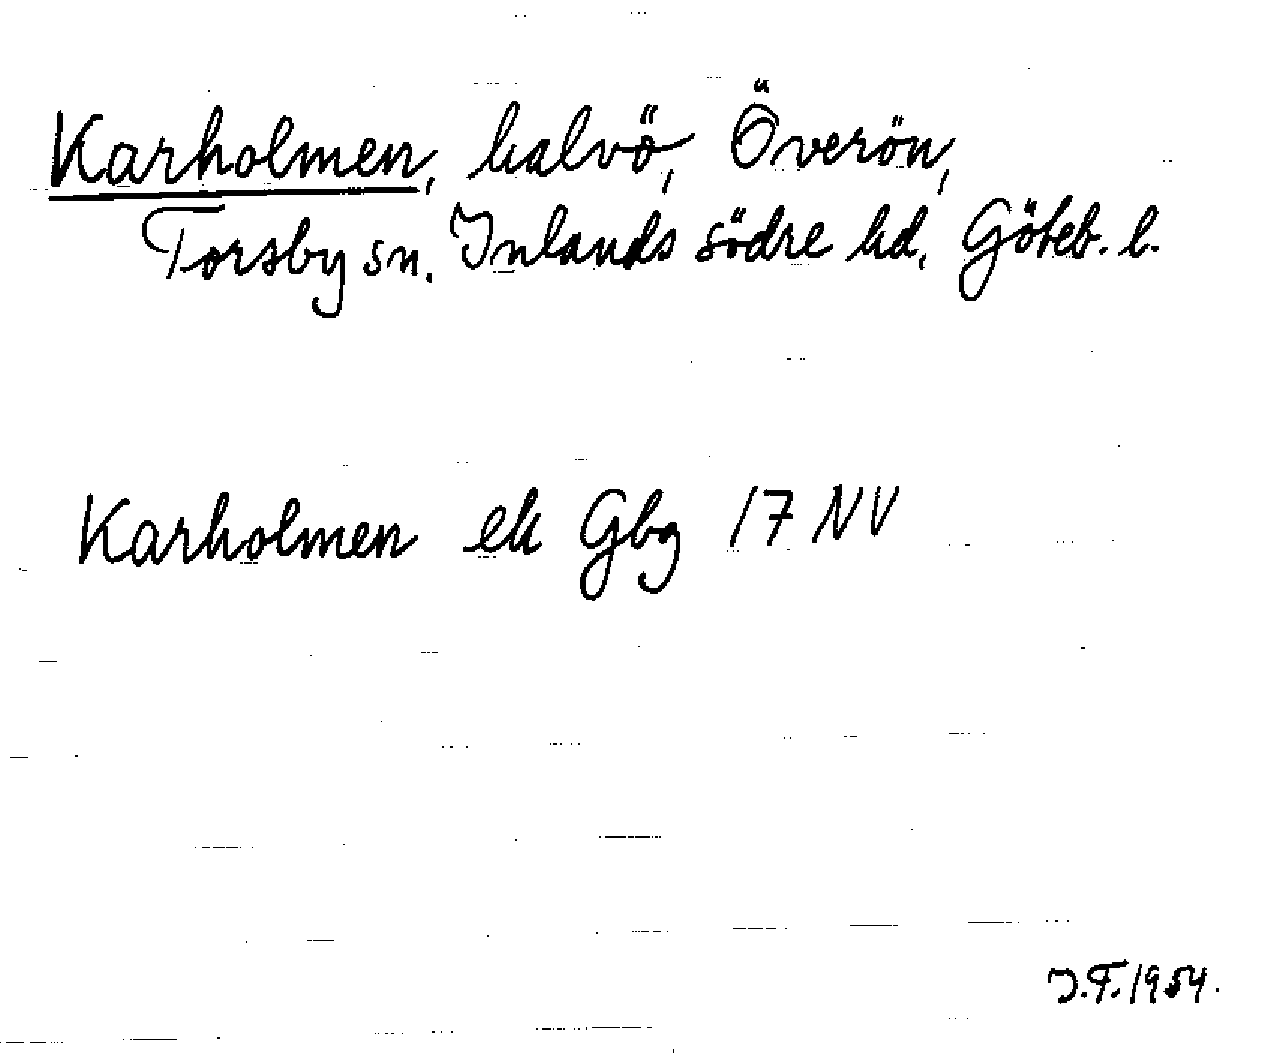 Karholmen, halvö, Överön,
Torsby sn. Inlands södre hd, Göteb. l.
Karholmen ek Gbg 17 NV
J.F. 1954.